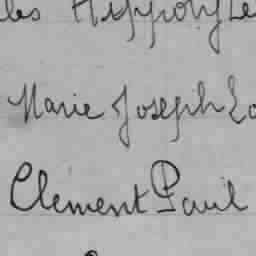 les Hippolyte
Marie Joseph Lo
Clément Paul